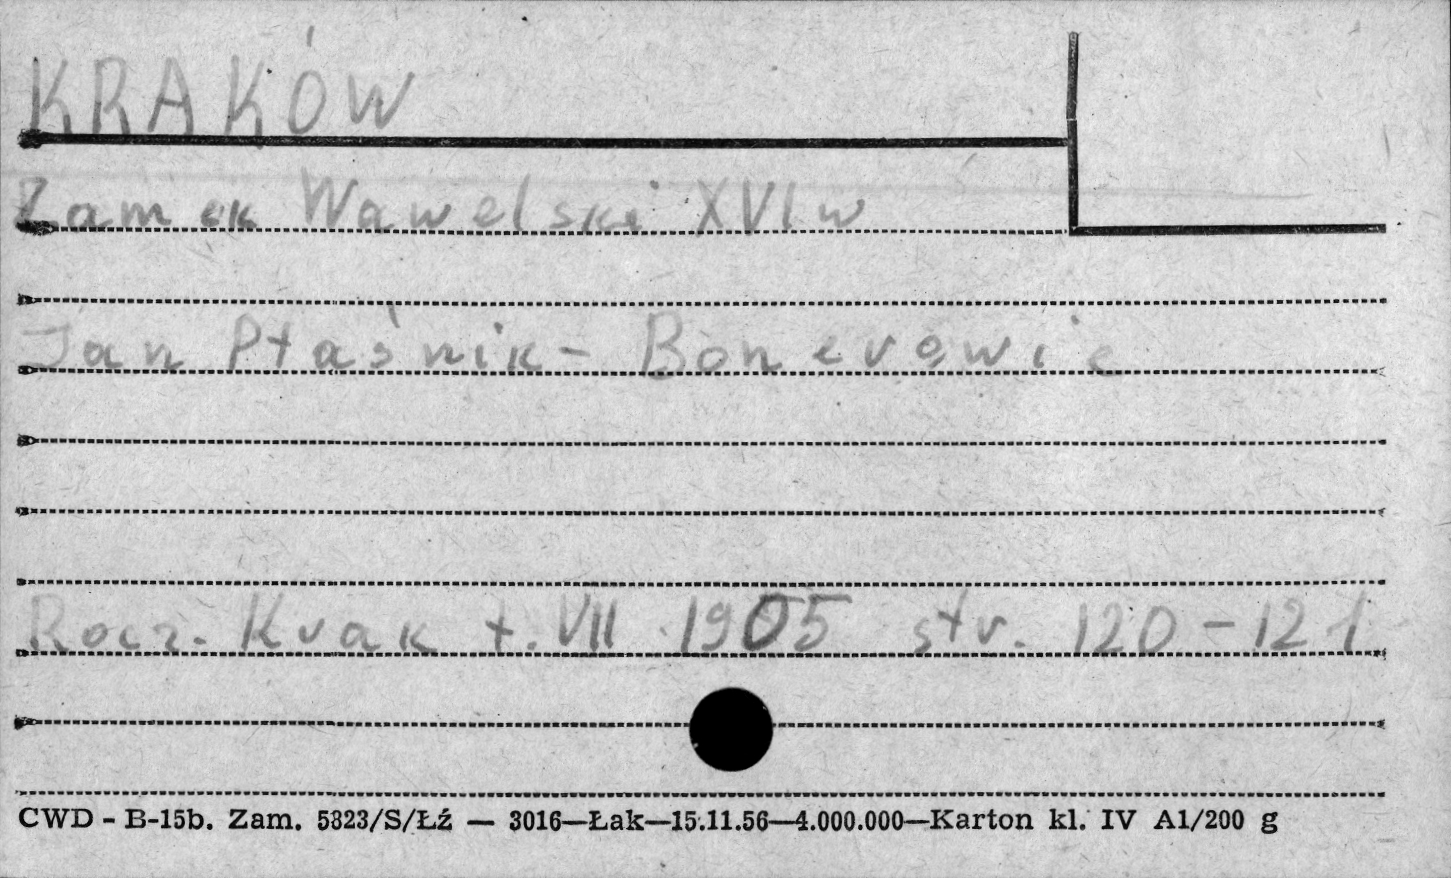 KRAKÓW
Zamek Wawelski XVI w
Jan Ptaśnik - Bonerowie
Rocz. Krak t. VII 1905 str. 120-121
CWD - B-15b. Zam. 5323/S/Łź — 3016—Łak—15.11.56—4.000.000—Karton kl. IV A1/200 g